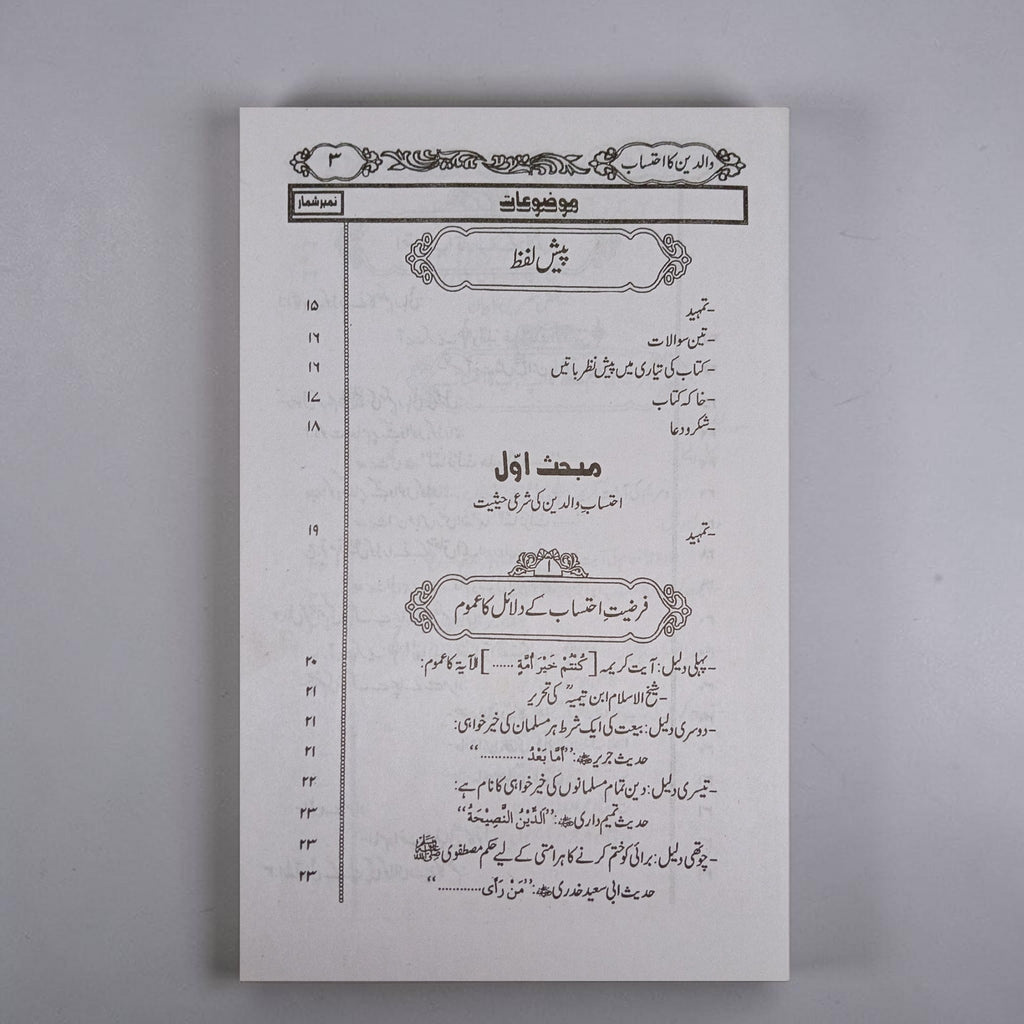 والدین کا احتساب ۳
موضوعات نمبر شمار
پیش لفظ
-تمہید ۱۵
-تین سوالات ۱۶
-کتاب کی تیاری میں پیش نظر باتیں ۱۶
-خاکہ کتاب ۱۷
-شکر و دعا ۱۸
مبحث اوّل
احتسابِ والدین کی شرعی حیثیت
-تمہید ۱۹
۱
فرضیتِ احتساب کے دلائل کا عموم
-پہلی دلیل: آیت کریمہ [كُنْتُمْ خَيْرَ أُمَّةٍ ......] الآية کا عموم: ۲۰
-شیخ الاسلام ابن تیمیہؒ کی تحریر ۲۱
-دوسری دلیل: بیعت کی ایک شرط ہر مسلمان کی خیر خواہی: ۲۱
حدیث جریر رضی اللہ عنہ: ”أَمَّا بَعْدُ ............“ ۲۱
-تیسری دلیل: دین تمام مسلمانوں کی خیر خواہی کا نام ہے: ۲۲
حدیث تمیم داری رضی اللہ عنہ: ”اَلدِّيْنُ النَّصِيْحَةُ“ ۲۳
-چوتھی دلیل: برائی کو ختم کرنے کا ہر امتی کے لیے حکم مصطفوی ﷺ ۲۳
حدیث ابی سعید خدری رضی اللہ عنہ: ”مَنْ رَأَى ............“ ۲۳